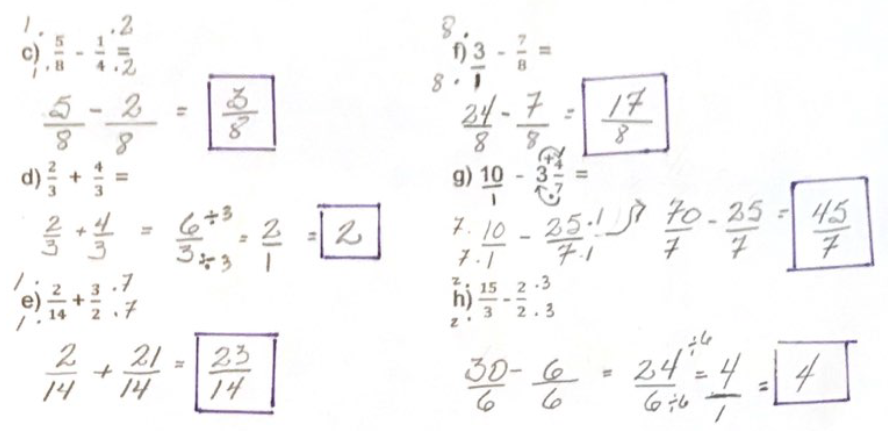 1. .2
c) 5/8 - 1/4 =
1. .2
5/8 - 2/8 = 3/8
d) 2/3 + 4/3 =
2/3 + 4/3 = 6/3 ÷3 ÷3 = 2/1 = 2
1. .7
e) 2/14 + 3/2
1. .7
2/14 + 21/14 = 23/14
8.
f) 3/1 - 7/8 =
8.
24/8 - 7/8 = 17/8
g) 10/1 - 3 4/7 =
+
.
7. 10/7. 1 - 25 .1/7 .1 70/7 - 25/7 = 45/7
2. .3
h) 15/3 - 2/2
2. .3
30/6 - 6/6 = 24/6 ÷6 ÷6 = 4/1 = 4